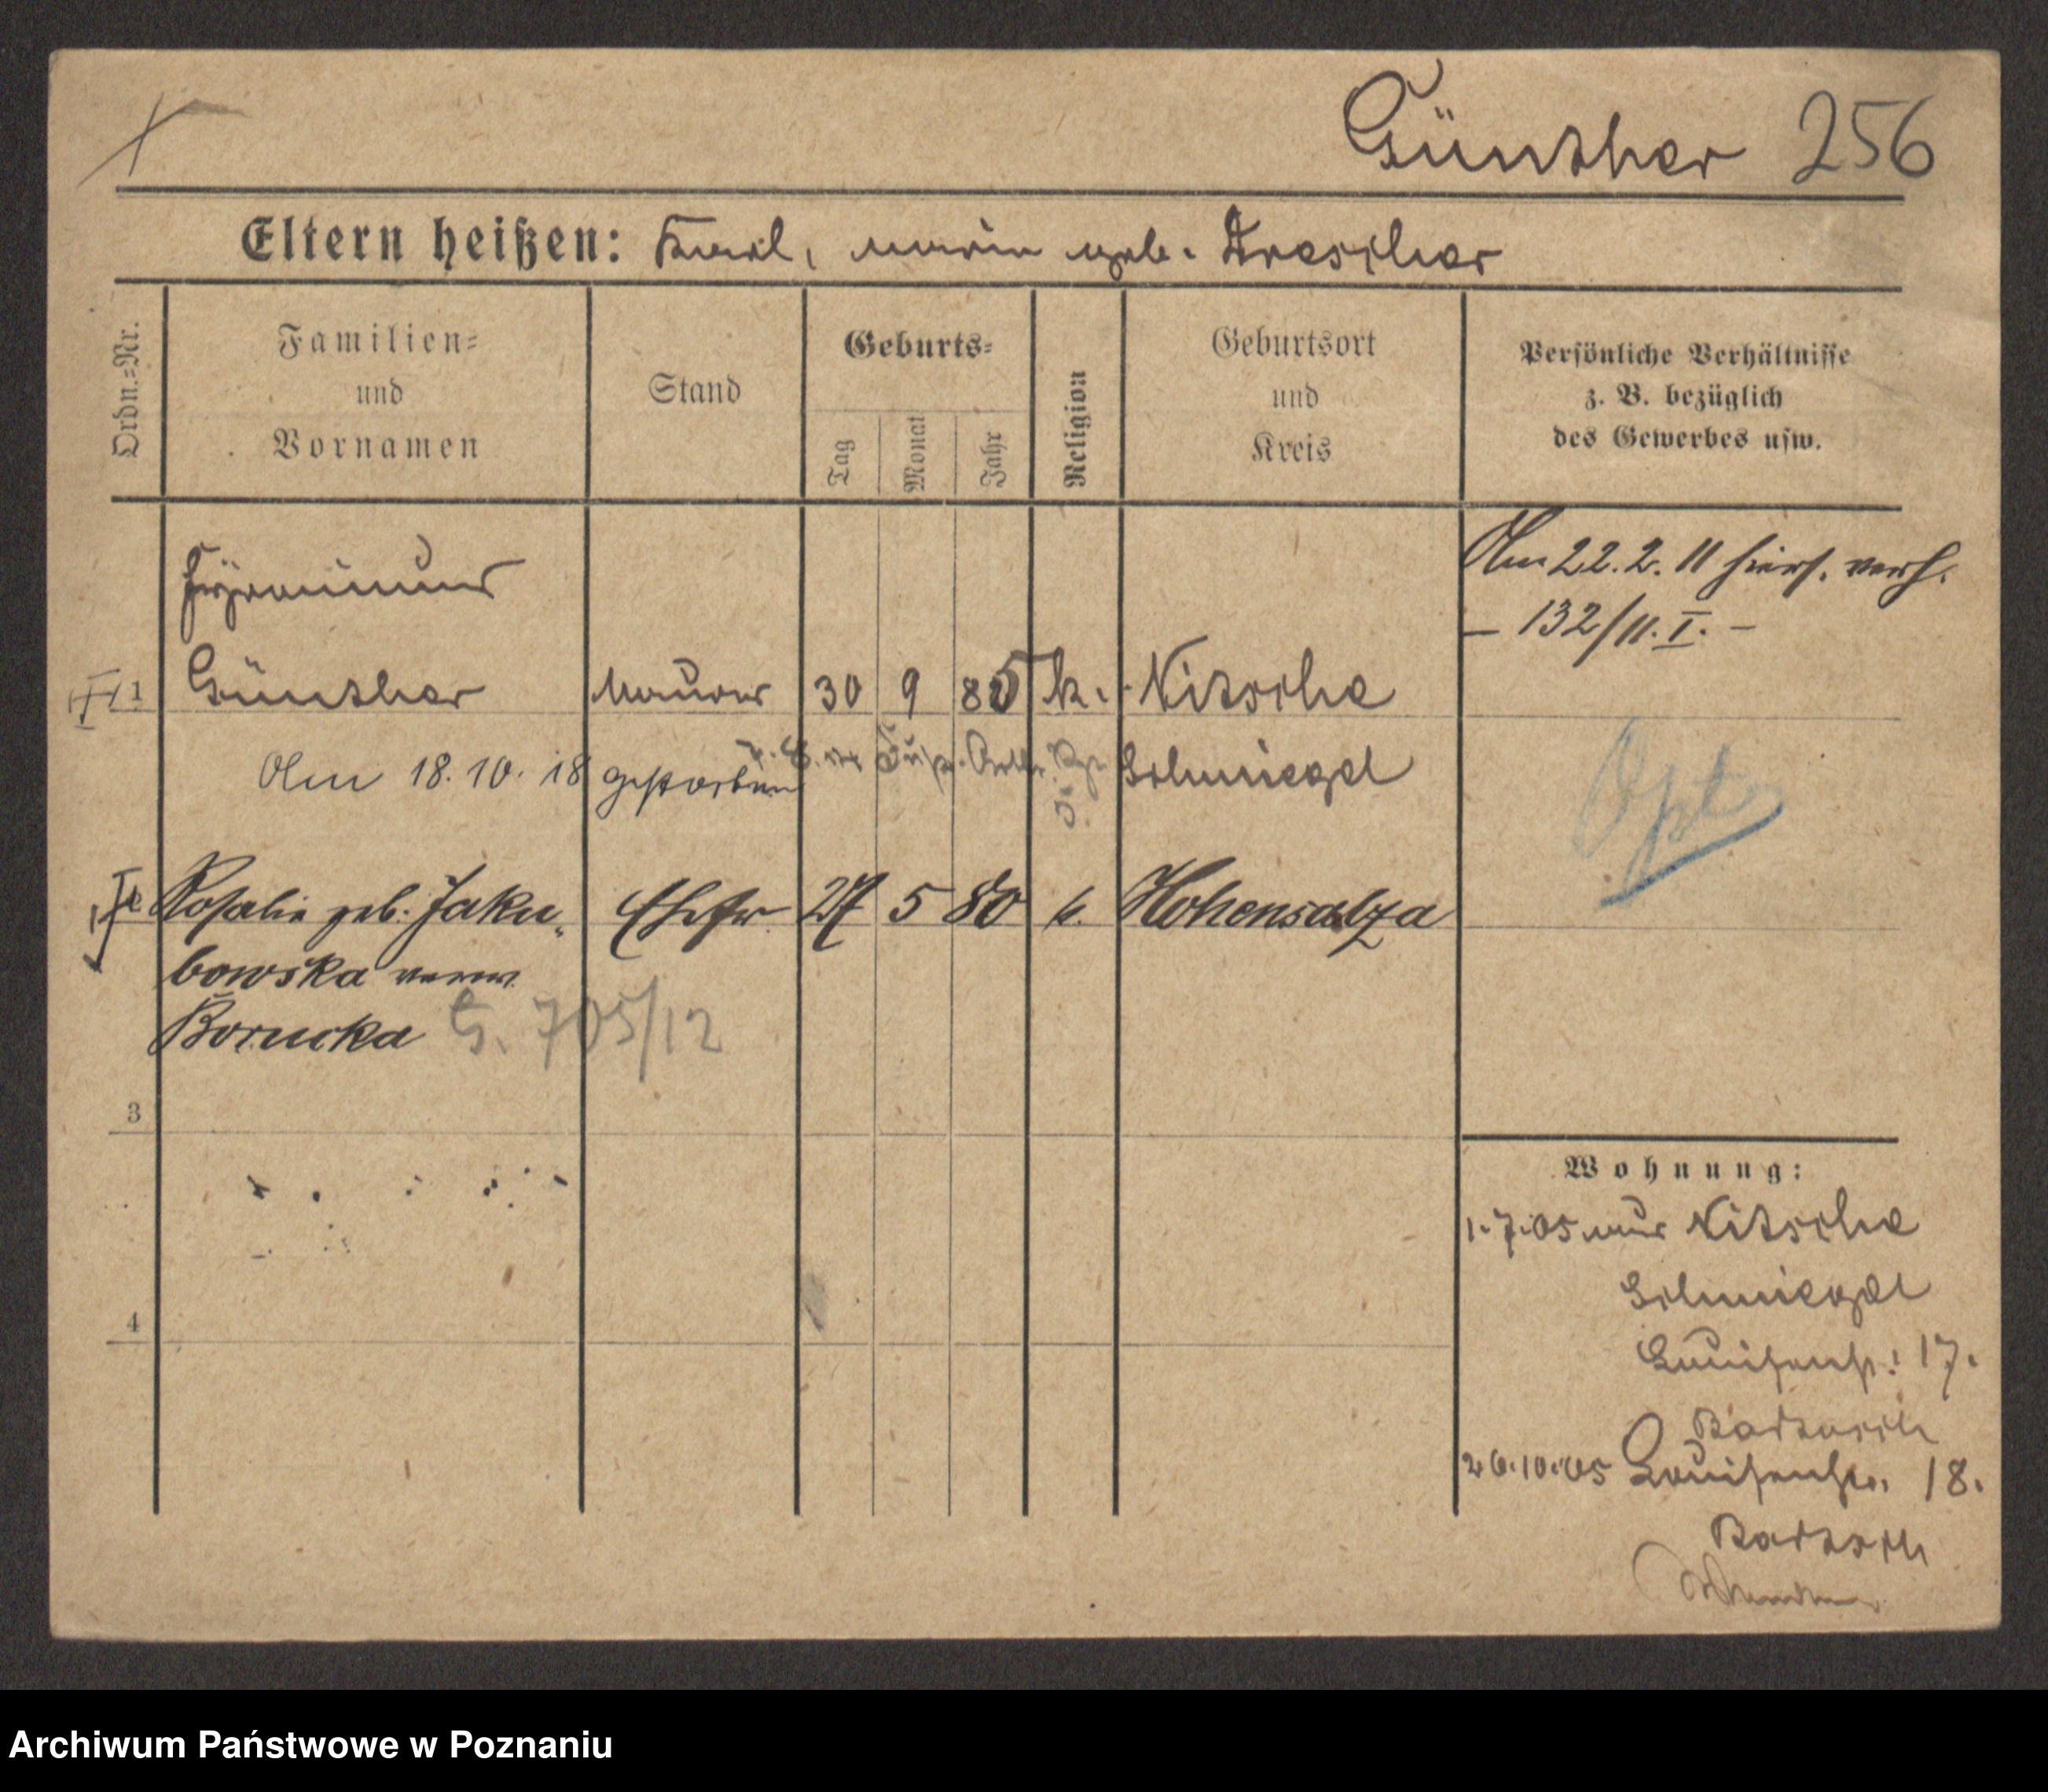 Günther 256
Eltern heißen: Karl, Maria geb. Drescher
Ordn.-Nr.
Familien-
und
Vornamen
Stand
Geburts-
Tag
Monat
Jahr
Religion
Geburtsort
und
Kreis
Persönliche Verhältnisse
z. B. bezüglich
des Gewerbes usw.
Am 22.2.11 hiers. verh.
— 132/11. I. —
1 Günther Maurer 30 9 85 k. Nitsche
Am 18.10.18 gestorben
Schmiegel
Opt
Rosalie geb. Jaku- Ehefr 27 5 80 k. Hohensalza
bowska verw.
Borucka G. 705/12
3
4
Wohnung:
1.7.05 aus Nitsche
Schmiegel
Louisenstr. 17.
26.10.05 Louisenstr. 18.
Archiwum Państwowe w Poznaniu